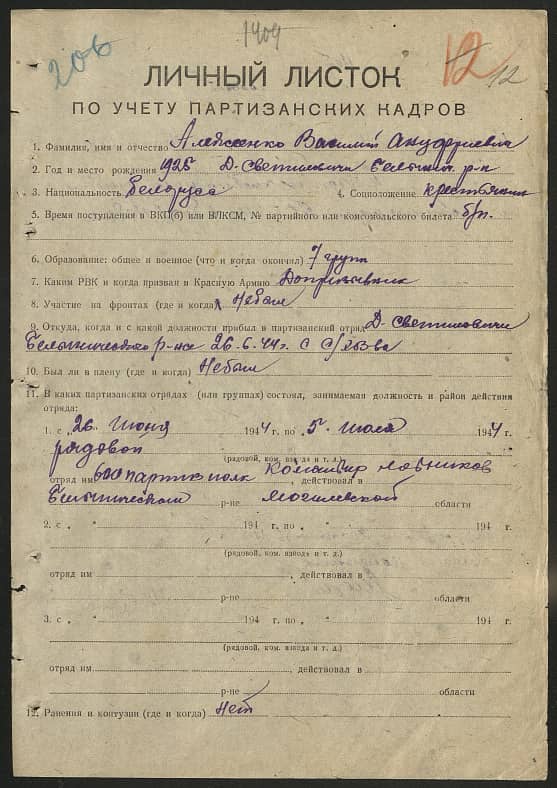 1404
206
12 12
ЛИЧНЫЙ ЛИСТОК
ПО УЧЕТУ ПАРТИЗАНСКИХ КАДРОВ
1. Фамилия, имя и отчество Василий Ануфриевич
2. Год и место рождения 1925 Д. Светиловичи Белынич. р-н
3. Национальность Белорусс 4. Соцположение крестьянин
5. Время поступления в ВКП(б) или ВЛКСМ, № партийного или комсомольского билета б/п.
6. Образование: общее и военное (что и когда окончил) 7 групп
7. Каким РВК и когда призван в Красную Армию Допризывник
8. Участие на фронтах (где и когда) Не был
9. Откуда, когда и с какой должности прибыл в партизанский отряд Д. Светиловичи
Белыничского р-на 26.6.44г. с
10. Был ли в плену (где и когда) Не был
11. В каких партизанских отрядах (или группах) состоял, занимаемая должность и район действия
отряда:
1. с 26 Июня 1944 г. по 5 Июля 1944 г.
рядовой
(рядовой, ком. взвода и т. д.)
отряд им 600 партиз полк Командир Новиков, действовал в
Белыническом р-не Могилевской области
2. с „ 194 г. по „ 194 г.
(рядовой, ком. взвода и т. д.)
отряд им , действовал в
р-не области
3. с „ 194 г. по „ 194 г.
(рядовой, ком. взвода и т. д.)
отряд им , действовал в
р-не области
12. Ранения и контузии (где и когда) Нет